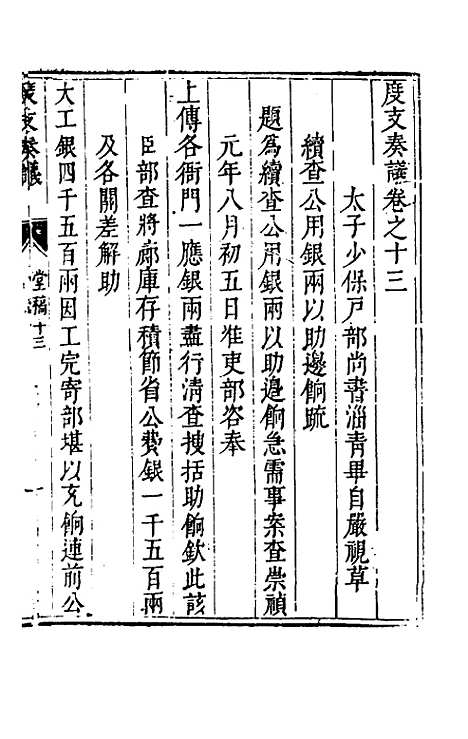 度支奏議卷之十三
太子少保戶部尚書淄青畢自嚴視草
續查公用銀兩以助邊餉疏
題為續查公用銀兩以助邊餉急需事案查崇禎
元年八月初五日准吏部咨奉
上傳各衙門一應銀兩盡行清查搜括助餉欽此該
臣部查將廊庫存積節省公費銀一千五百兩
及各關差解助
大工銀四千五百兩因工完寄部堪以充餉連前公
度支奏議
堂稿十三